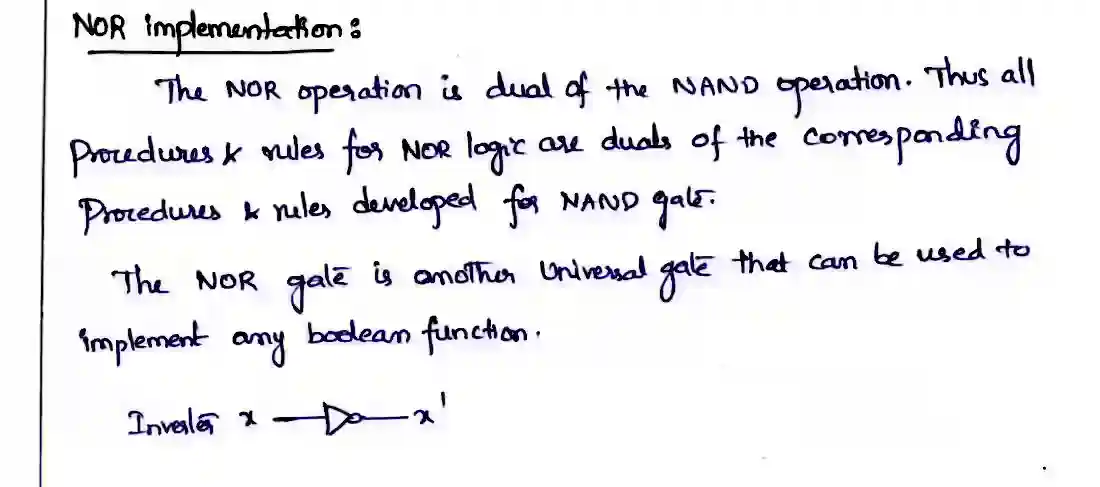 NOR implementation :
The NOR operation is dual of the NAND operation. Thus all
Procedures & rules for NOR logic are duals of the corresponding
Procedures & rules developed for NAND gate.
The NOR gate is another Universal gate that can be used to
implement any boolean function.
Inverter x x'